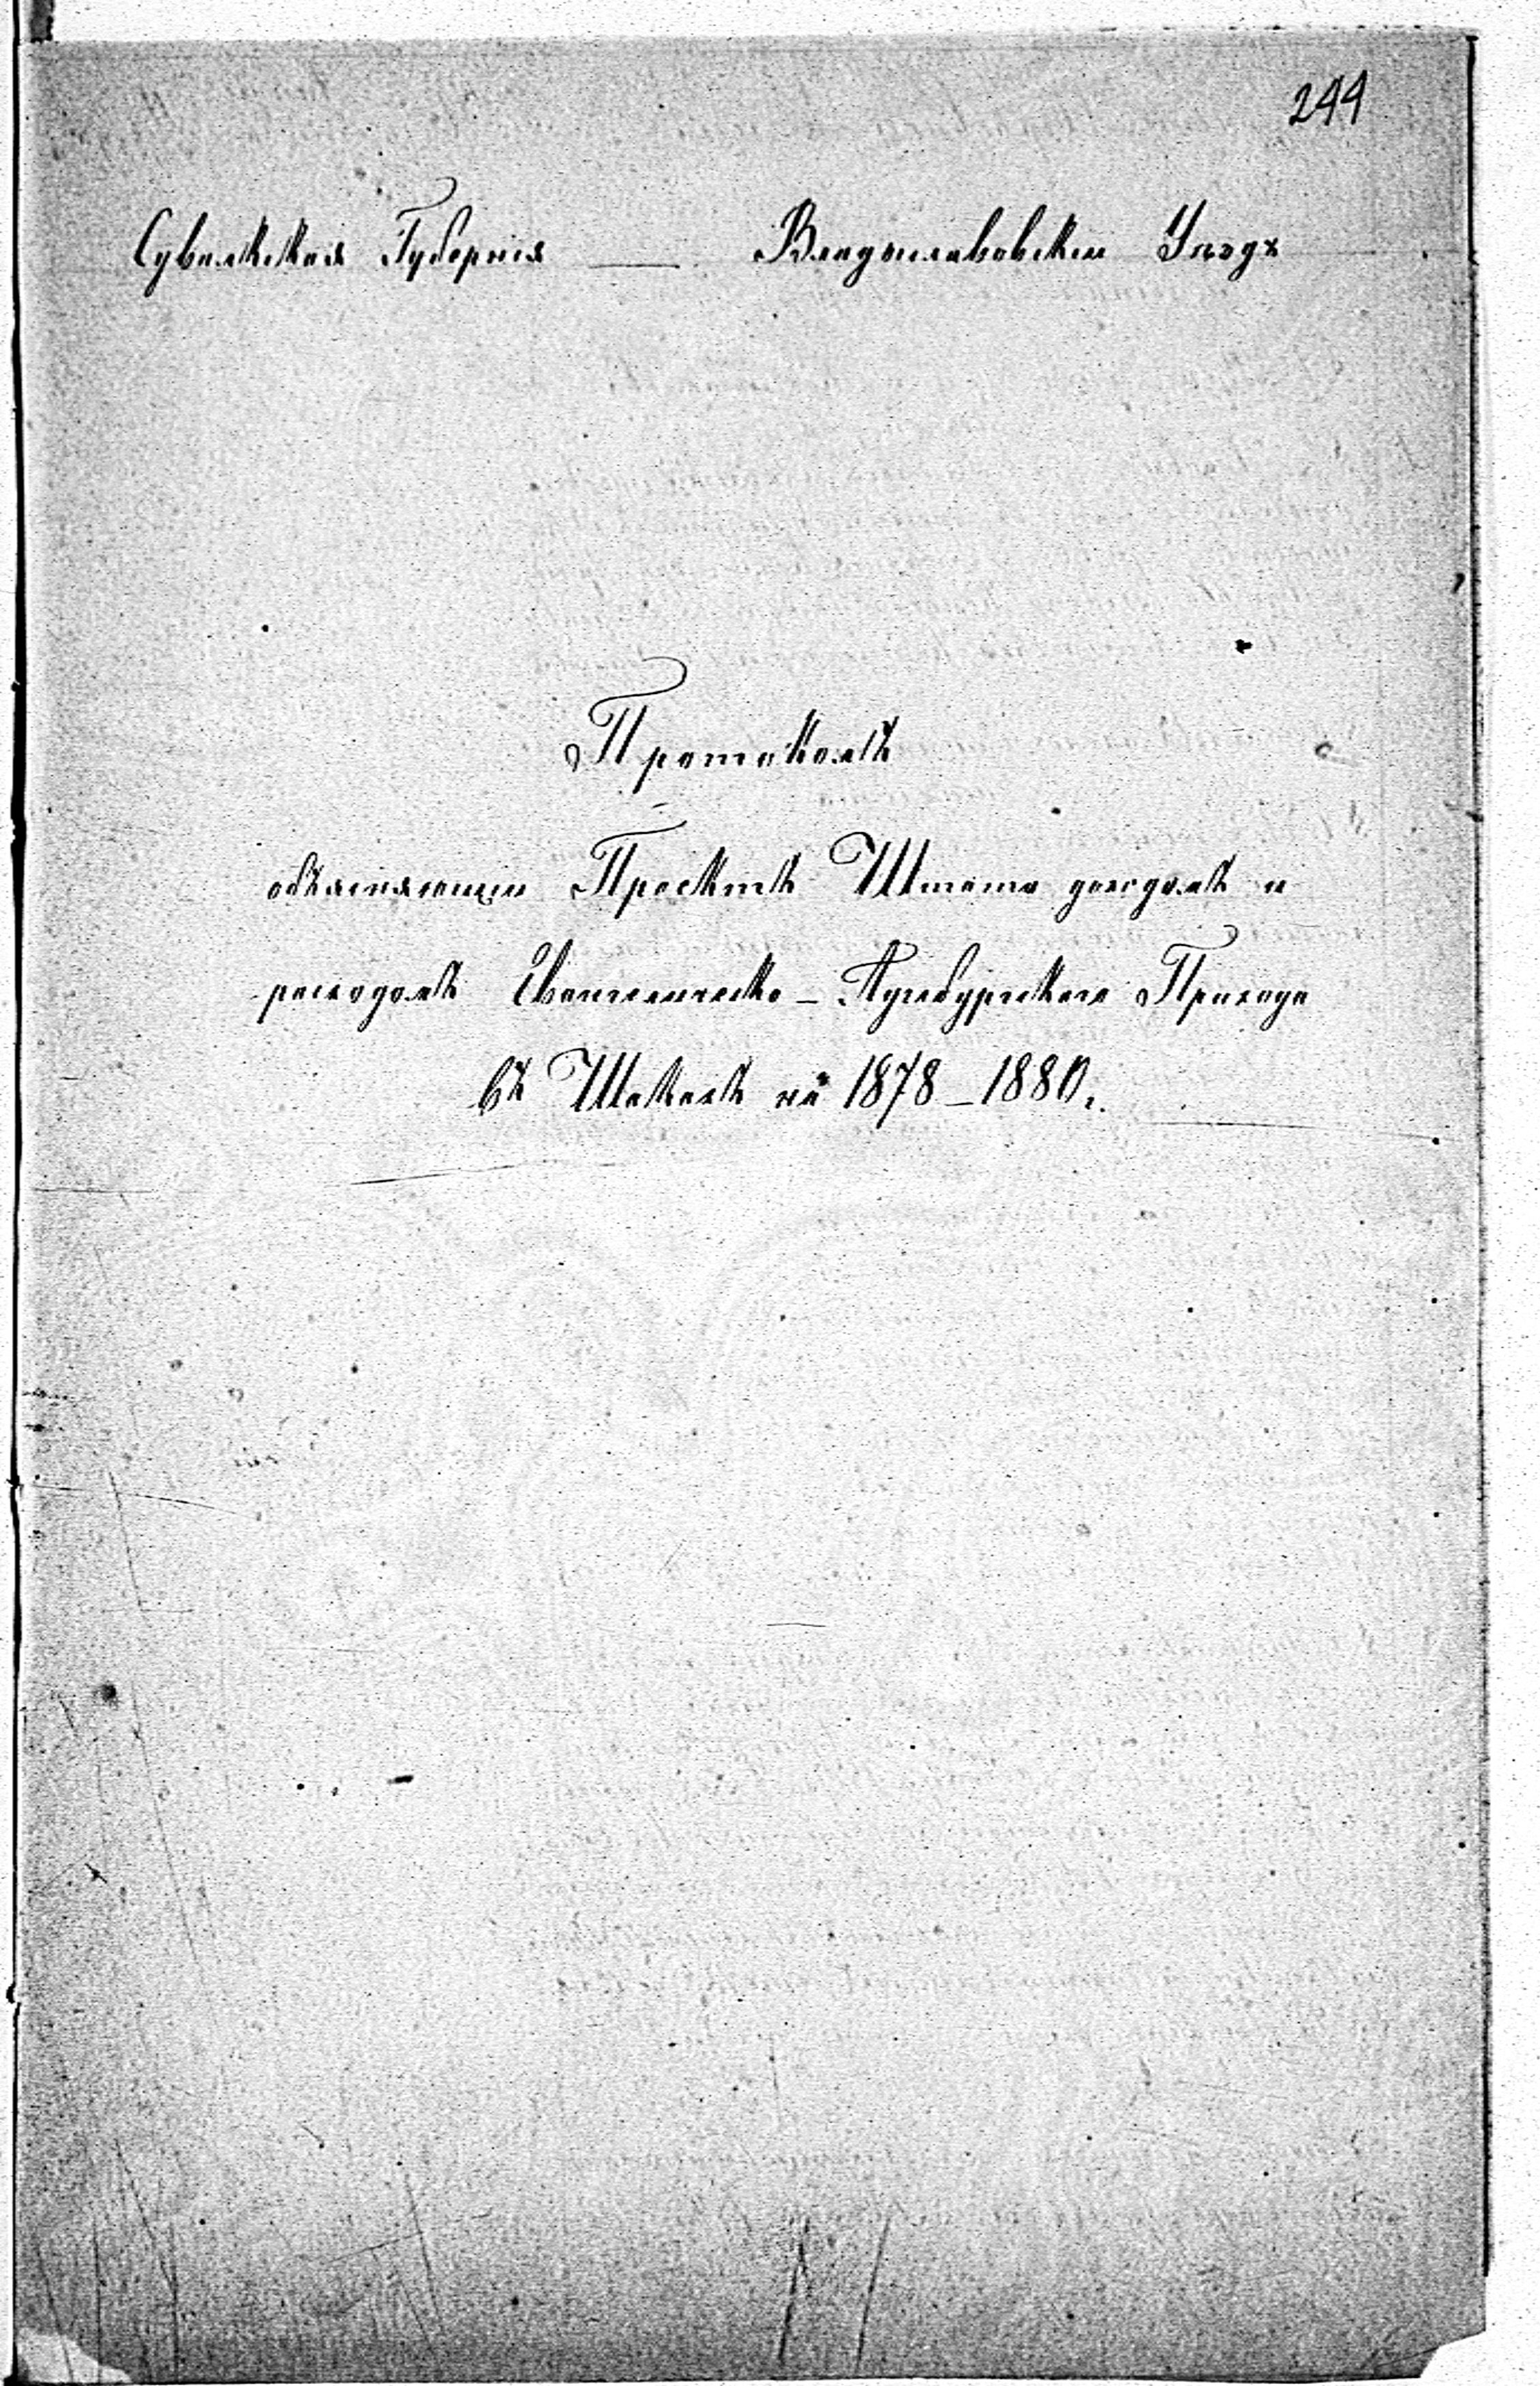 244
Сувалкская Губернія — Владыславовскіи Уѣздъ
Протоколъ
объясняющіи Проектъ Штата доходамъ и
расходамъ Евангелическо-Аугсбургскаго Прихода
въ Шакахъ на 1878–1880 г.